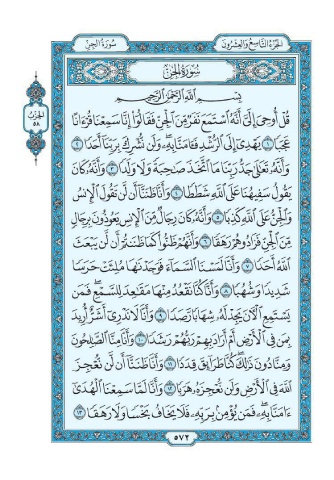 الجزء التاسع والعشرون
سورة الجن
سورة الجن
بسم الله الرحمن الرحيم
الحزب
٥٨
قُلْ أُوحِىَ إِلَىَّ أَنَّهُ ٱسْتَمَعَ نَفَرٌ مِّنَ ٱلْجِنِّ فَقَالُوٓا۟ إِنَّا سَمِعْنَا قُرْءَانًا
عَجَبًا ١ يَهْدِىٓ إِلَى ٱلرُّشْدِ فَـَٔامَنَّا بِهِۦ وَلَن نُّشْرِكَ بِرَبِّنَآ أَحَدًا ٢
وَأَنَّهُۥ تَعَـٰلَىٰ جَدُّ رَبِّنَا مَا ٱتَّخَذَ صَـٰحِبَةً وَلَا وَلَدًا ٣ وَأَنَّهُۥ كَانَ
يَقُولُ سَفِيهُنَا عَلَى ٱللَّهِ شَطَطًا ٤ وَأَنَّا ظَنَنَّآ أَن لَّن تَقُولَ ٱلْإِنسُ
وَٱلْجِنُّ عَلَى ٱللَّهِ كَذِبًا ٥ وَأَنَّهُۥ كَانَ رِجَالٌ مِّنَ ٱلْإِنسِ يَعُوذُونَ بِرِجَالٍ
مِّنَ ٱلْجِنِّ فَزَادُوهُمْ رَهَقًا ٦ وَأَنَّهُمْ ظَنُّوا۟ كَمَا ظَنَنتُمْ أَن لَّن يَبْعَثَ
ٱللَّهُ أَحَدًا ٧ وَأَنَّا لَمَسْنَا ٱلسَّمَآءَ فَوَجَدْنَـٰهَا مُلِئَتْ حَرَسًا
شَدِيدًا وَشُهُبًا ٨ وَأَنَّا كُنَّا نَقْعُدُ مِنْهَا مَقَـٰعِدَ لِلسَّمْعِ فَمَن
يَسْتَمِعِ ٱلْـَٔانَ يَجِدْ لَهُۥ شِهَابًا رَّصَدًا ٩ وَأَنَّا لَا نَدْرِىٓ أَشَرٌّ أُرِيدَ
بِمَن فِى ٱلْأَرْضِ أَمْ أَرَادَ بِهِمْ رَبُّهُمْ رَشَدًا ١٠ وَأَنَّا مِنَّا ٱلصَّـٰلِحُونَ
وَمِنَّا دُونَ ذَٰلِكَ كُنَّا طَرَآئِقَ قِدَدًا ١١ وَأَنَّا ظَنَنَّآ أَن لَّن نُّعْجِزَ
ٱللَّهَ فِى ٱلْأَرْضِ وَلَن نُّعْجِزَهُۥ هَرَبًا ١٢ وَأَنَّا لَمَّا سَمِعْنَا ٱلْهُدَىٰٓ
ءَامَنَّا بِهِۦ فَمَن يُؤْمِنۢ بِرَبِّهِۦ فَلَا يَخَافُ بَخْسًا وَلَا رَهَقًا ١٣
٥٧٢